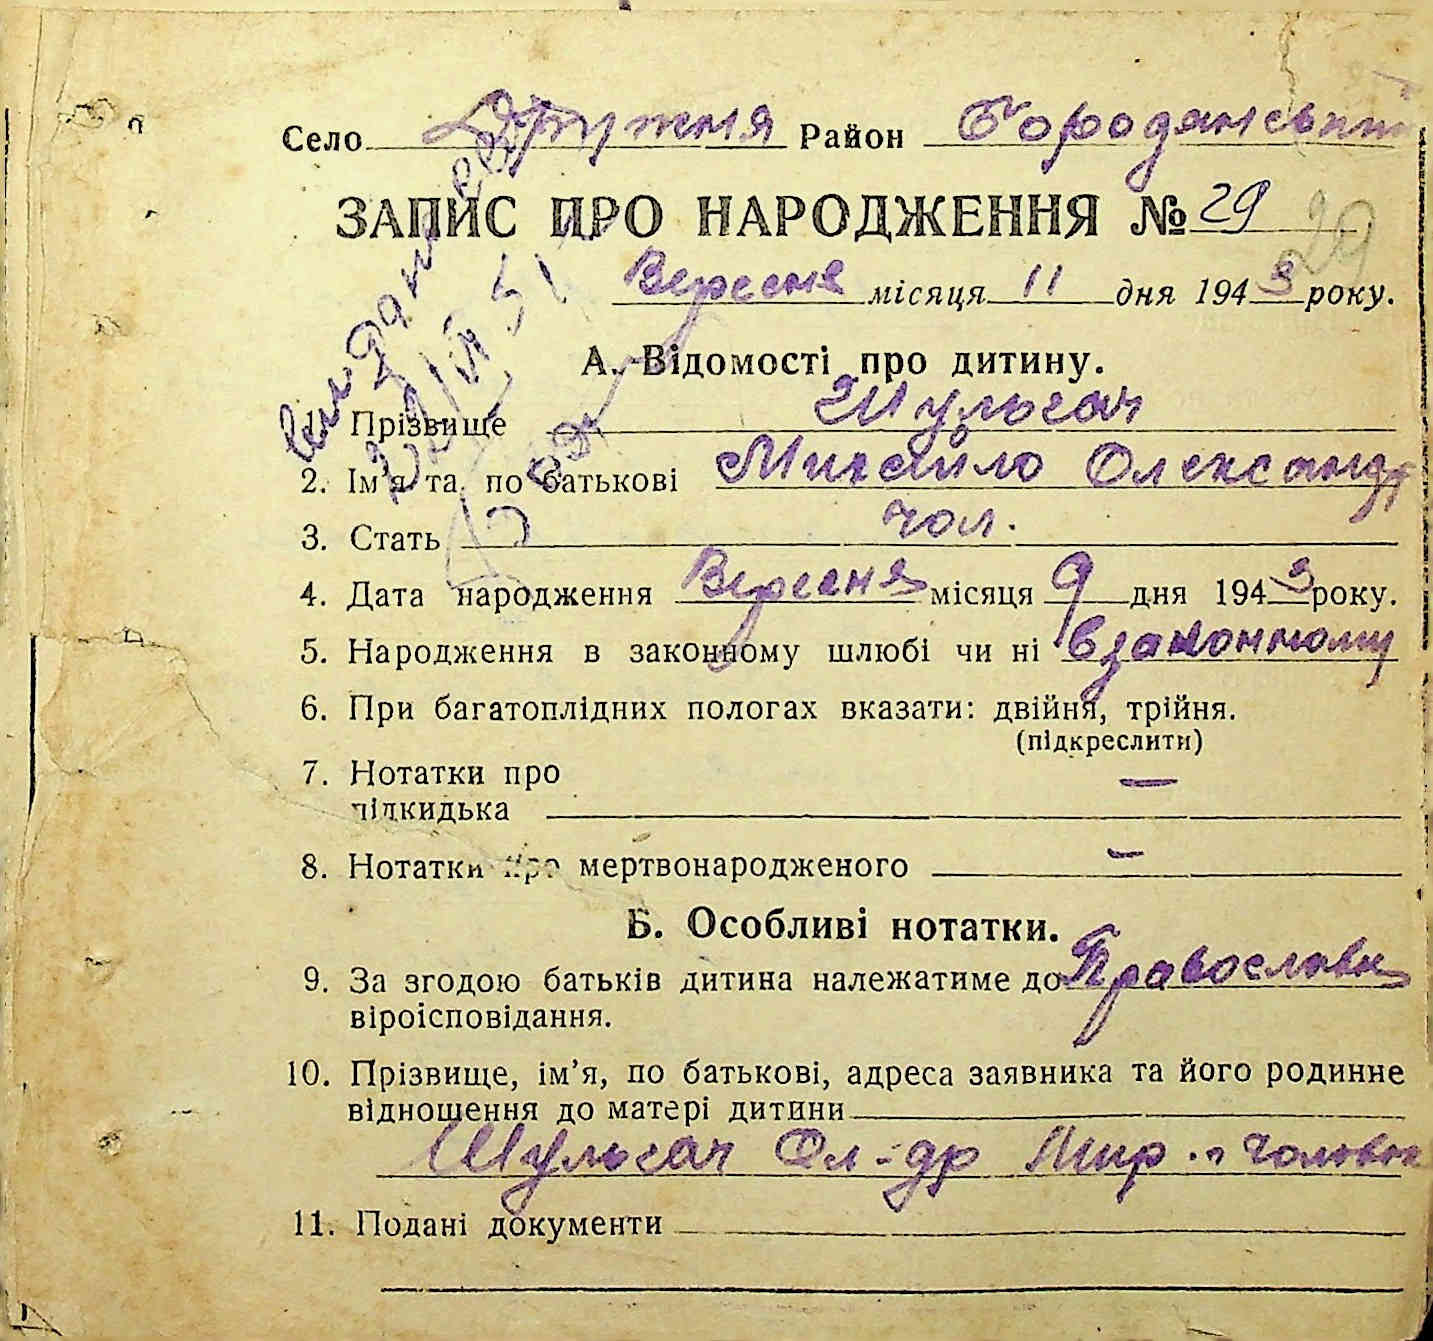 Село Дружня Район Бородянський
ЗАПИС ПРО НАРОДЖЕННЯ № 29
29
Вересня місяця 11 дня 1943 року.
А. Відомості про дитину.
1. Прізвище Шульгач
2. Ім'я та по батькові Михайло Олександр
3. Стать чол.
4. Дата народження Вересня місяця 9 дня 1943 року.
5. Народження в законному шлюбі чи ні в законному
6. При багатоплідних пологах вказати: двійня, трійня.
(підкреслити)
7. Нотатки про
підкидька —
8. Нотатки про мертвонародженого —
Б. Особливі нотатки.
9. За згодою батьків дитина належатиме до Православн
віроісповідання.
10. Прізвище, ім'я, по батькові, адреса заявника та його родинне
відношення до матері дитини
Шульгач Ол-др Мир. чоловік
11. Подані документи